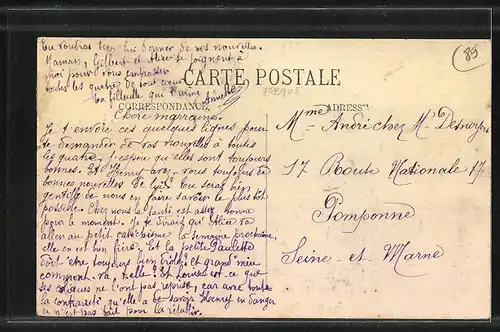 Tu voudras bien lui donner de nos nouvelles.
Maman, Gilbert et Alice se joignent à
moi pour vous embrasser
toutes les quatre de tout coeur
Ta filleule qui t'aime
Annette
89
CARTE POSTALE
CORRESPONDANCE
ADRESSE
Chère marraine,
Je t'envoie ces quelques lignes pour
te demander de vos nouvelles à toutes
les quatre. J'espère qu'elles sont toujours
bonnes. Et Henry avez-vous toujours de
bonnes nouvelles de lui. Tu serais bien
gentille de nous en faire savoir le plus tôt
possible. Chez nous la santé est assez bonne
pour le moment. Je te dirais qu'Alice va
aller au petit catéchisme la semaine prochaine,
elle en est bien fière. Et la petite Paulette
doit être toujours bien drôle; et grand'mère
comment va-t-elle? Et Louise est-ce que
ses coliques ne l'ont pas reprise, car avec toute
la contrariété qu'elle a de savoir Henry en danger
ce n'est pas fait pour la rétablir.
Mme André chez Mr Desnoyers
17 Route Nationale 17
Pomponne
Seine-et-Marne